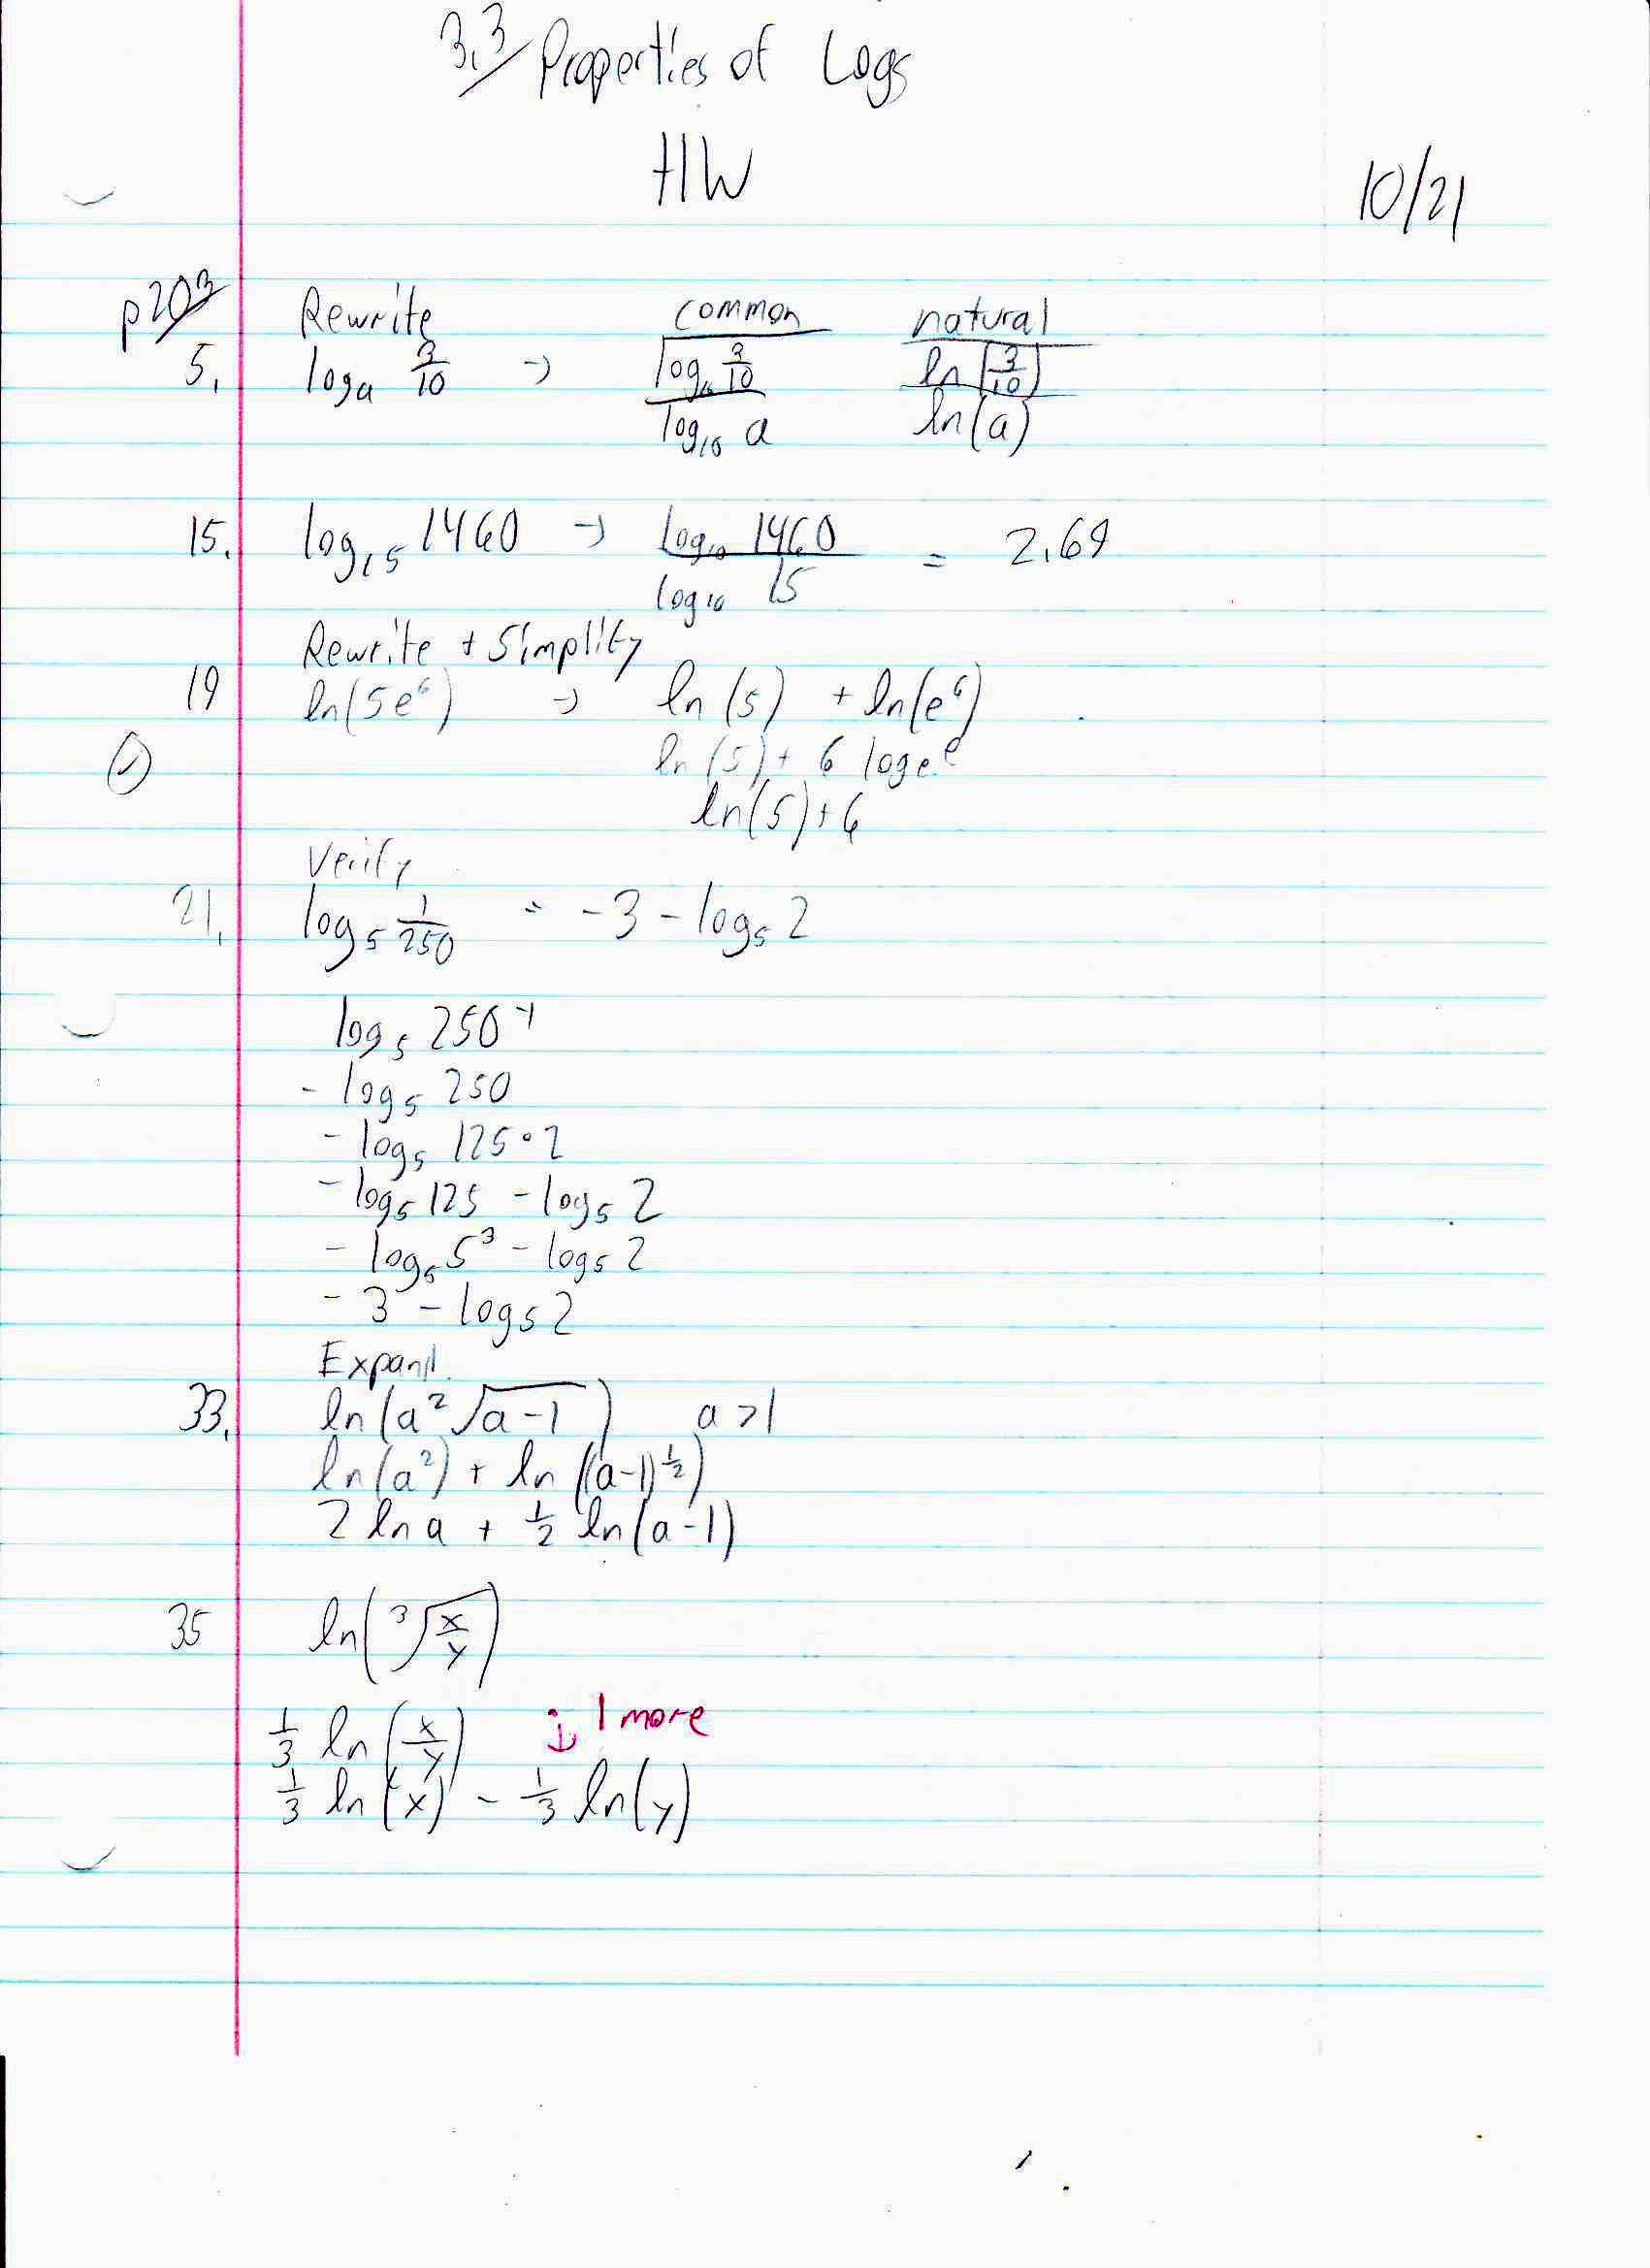 3.3 Properties of Logs
HW
10/21
p203 Rewrite common natural
5. log_a 3/10 → log_10 3/10 / log_10 a ln(3/10) / ln(a)
15. log_15 1460 → log_10 1460 / log_10 15 = 2.69
Rewrite + Simplify
19 ln(5e^6) → ln(5) + ln(e^6)
ln(5) + 6 log_e e
ln(5) + 6
Verify
21. log_5 1/250 = -3 - log_5 2
log_5 250^-1
- log_5 250
- log_5 125•2
- log_5 125 - log_5 2
- log_5 5^3 - log_5 2
- 3 - log_5 2
Expand
33. ln(a^2 √(a-1)) a>1
ln(a^2) + ln((a-1)^1/2)
2 ln a + 1/2 ln(a-1)
35 ln(³√(x/y))
1/3 ln(x/y) 1 more
1/3 ln(x) - 1/3 ln(y)